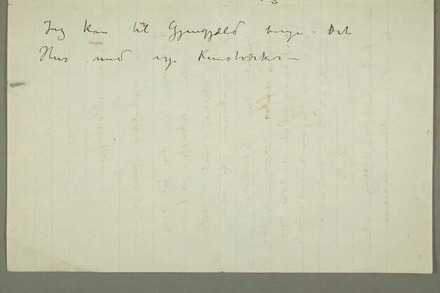 Jeg kan til Gjengjæld berige Dit
Hus med nye Kunstværker